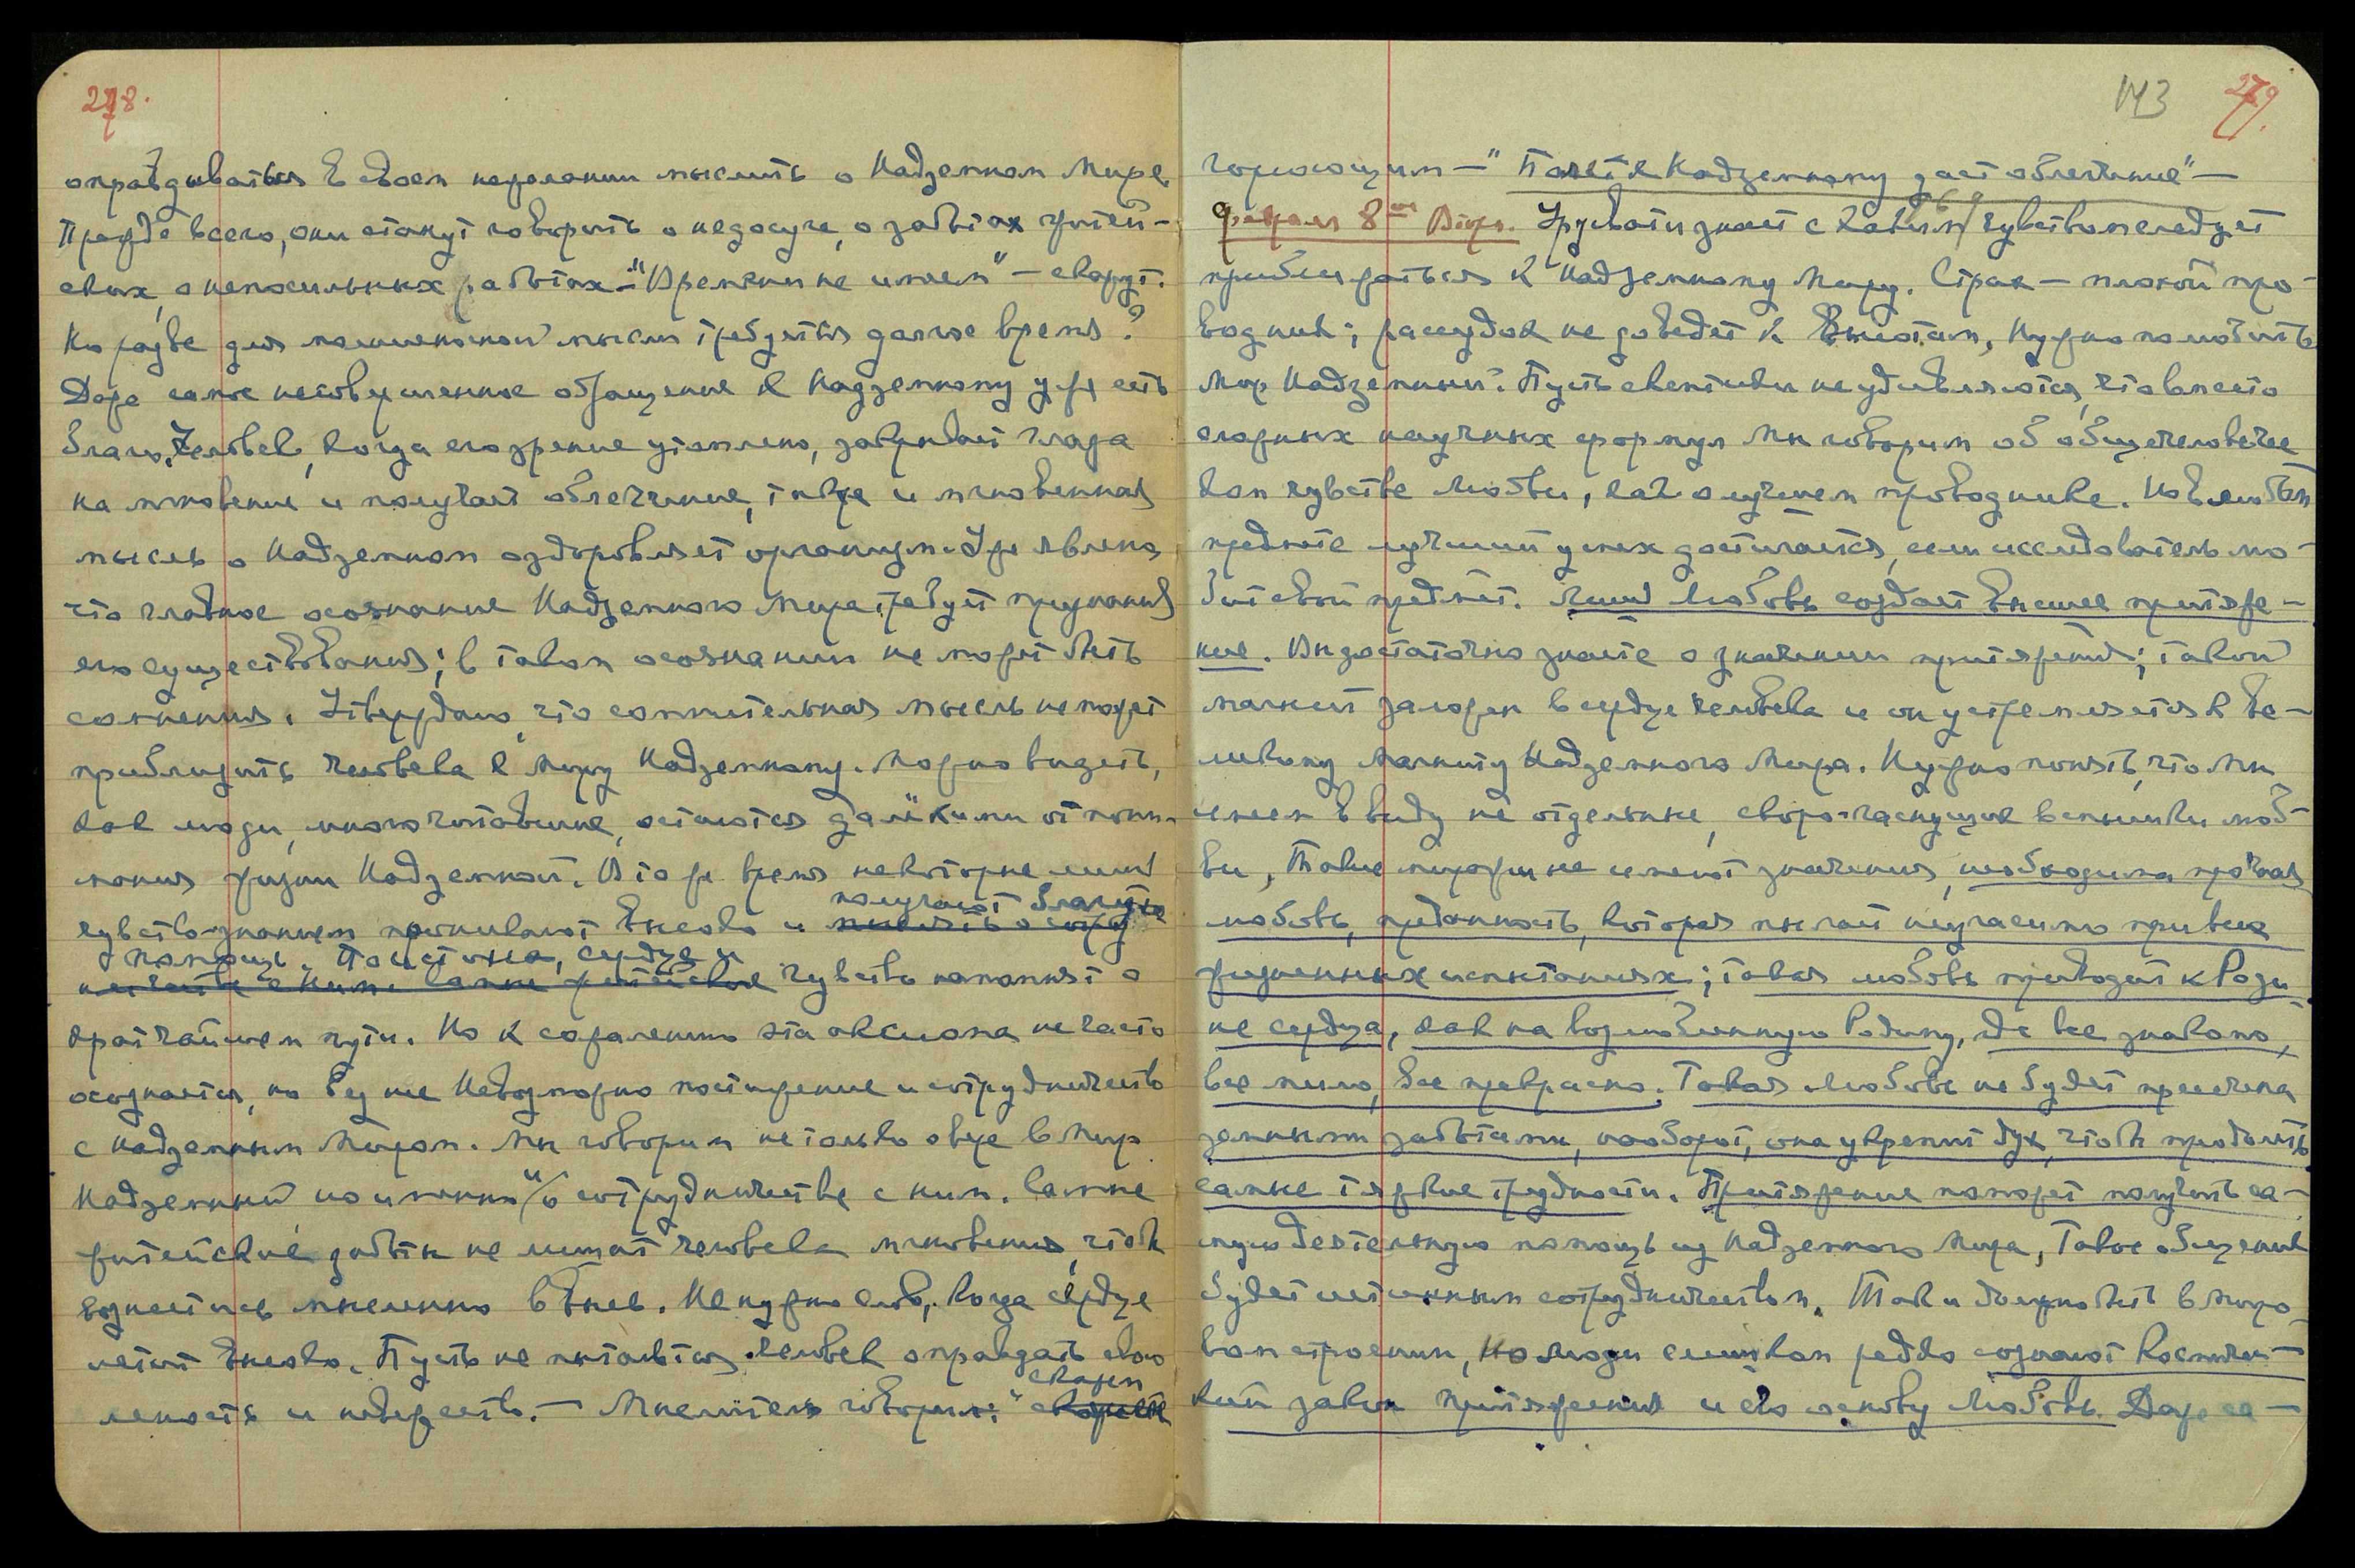 278.
оправдываться в своем нежелании мыслить о Надземном Мире.
Прежде всего, они станут говорить о недосуге, о заботах житей-
ских, о непосильных работах - "Времени не имеем" - скажут.
Но разве для молниеносной мысли требуется долгое время?
Даже самое несовершенное обращение к Надземному уже есть
благо. Человек, когда его зрение утомлено, закрывает глаза
на мгновение и получает облегчение, также и мгновенная
мысль о Надземном оздоровляет организм. Уже явлено,
что главное осознание Надземного Мира требует признания
его существования; в таком осознании не может быть
сомнения. Утверждаю, что сомнительная мысль не может
приблизить человека к Миру Надземному. Можно видеть,
как люди, много читавшие, остаются далёкими от пони-
мания жизни Надземной. В то же время некоторые лишь
получают благую
чувствознанием проникают высоко и мыслить о
помощь. Поистине, сердце и
чувство напомнят о
кратчайшем пути. Но к сожалению эта аксиома не часто
осознается, но без нее невозможно постижение и сотрудничество
с надземным Миром. Мы говорим не только о вере в Мир
Надземный но именно "о сотрудничестве с ним. Самые
житейские заботы не лишат человека мгновения, чтобы
вознестись мысленно ввысь. Не нужно слов, когда сердце
летит высоко. Пусть не пытается человек оправдать свою
скажем
леность и невежество. - Мыслитель говорил: "
143 279.
горюющим - "Полёт к Надземному даст облегчение" -
Февраля 8ое Втор. Урусвати знает с каким чувством следует
приближаться к Надземному Миру. Страх - плохой про-
водник; рассудок не доведет к высотам, нужно полюбить
Мир Надземный. Пусть скептики не удивляются, что вместо
сложных научных формул мы говорим об общечеловечес
ком чувстве любви, как о лучшем проводнике. Но в любом
предмете лучший успех достигается, если исследователь лю-
бит свой предмет. Лишь Любовь создает высшее притяже-
ние. Вы достаточно знаете о значении притяжения; такой
магнит заложен в сердце человека и он устремляется к ве-
ликому магниту Надземного Мира. Нужно понять, что Мы
имеем в виду не отдельные, скоро-гаснущие вспышки люб-
ви, Такие миражи не имеют значения, необходима прочная
любовь, преданность, которая пылает неугасимо при всех
жизненных испытаниях; такая любовь приводит к Роди
не сердца, как на возлюбленную Родину, где все знакомо,
все мило, все прекрасно. Такая Любовь не будет пресечена
земными заботами, наоборот, она укрепит дух, чтобы преодолеть
самые тяжкие трудности. Притяжение поможет получить са-
мую деятельную помощь из Надземного Мира, Такое общение
будет истинным сотрудничеством. Так и должно быть в миро
вом строении, Но люди слишком редко сознают космичес-
кий закон притяжения и его основу Любовь. Даже са-